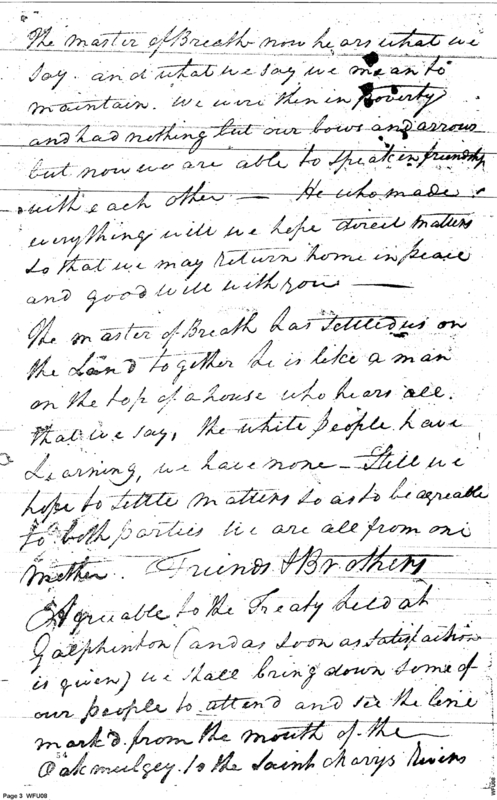 The master of Breath now hears what we
say. and what we say we mean to
maintain. We were then in poverty
and had nothing but our bows and arrows
but now we are able to speak in friendship
with each other — He who made
everything will we hope direct matters
so that we may return home in peace
and good will with you —
The master of Breath has settled us on
the Land together he is like a man
on the top of a house who hears all.
that we say, the white people have
Learning, we have none — Still we
hope to settle matters so as to be agreable
to both parties we are all from one
mother. Friends & Brothers
Agreeable to the Treaty held at
Galphinton (and as soon as satisfaction
is given) we shall bring down some of
our people to attend and see the line
mark'd from the mouth of the
Oakmulgey to the Saint Marys Rivers
Page 3 WFU08
WFU08